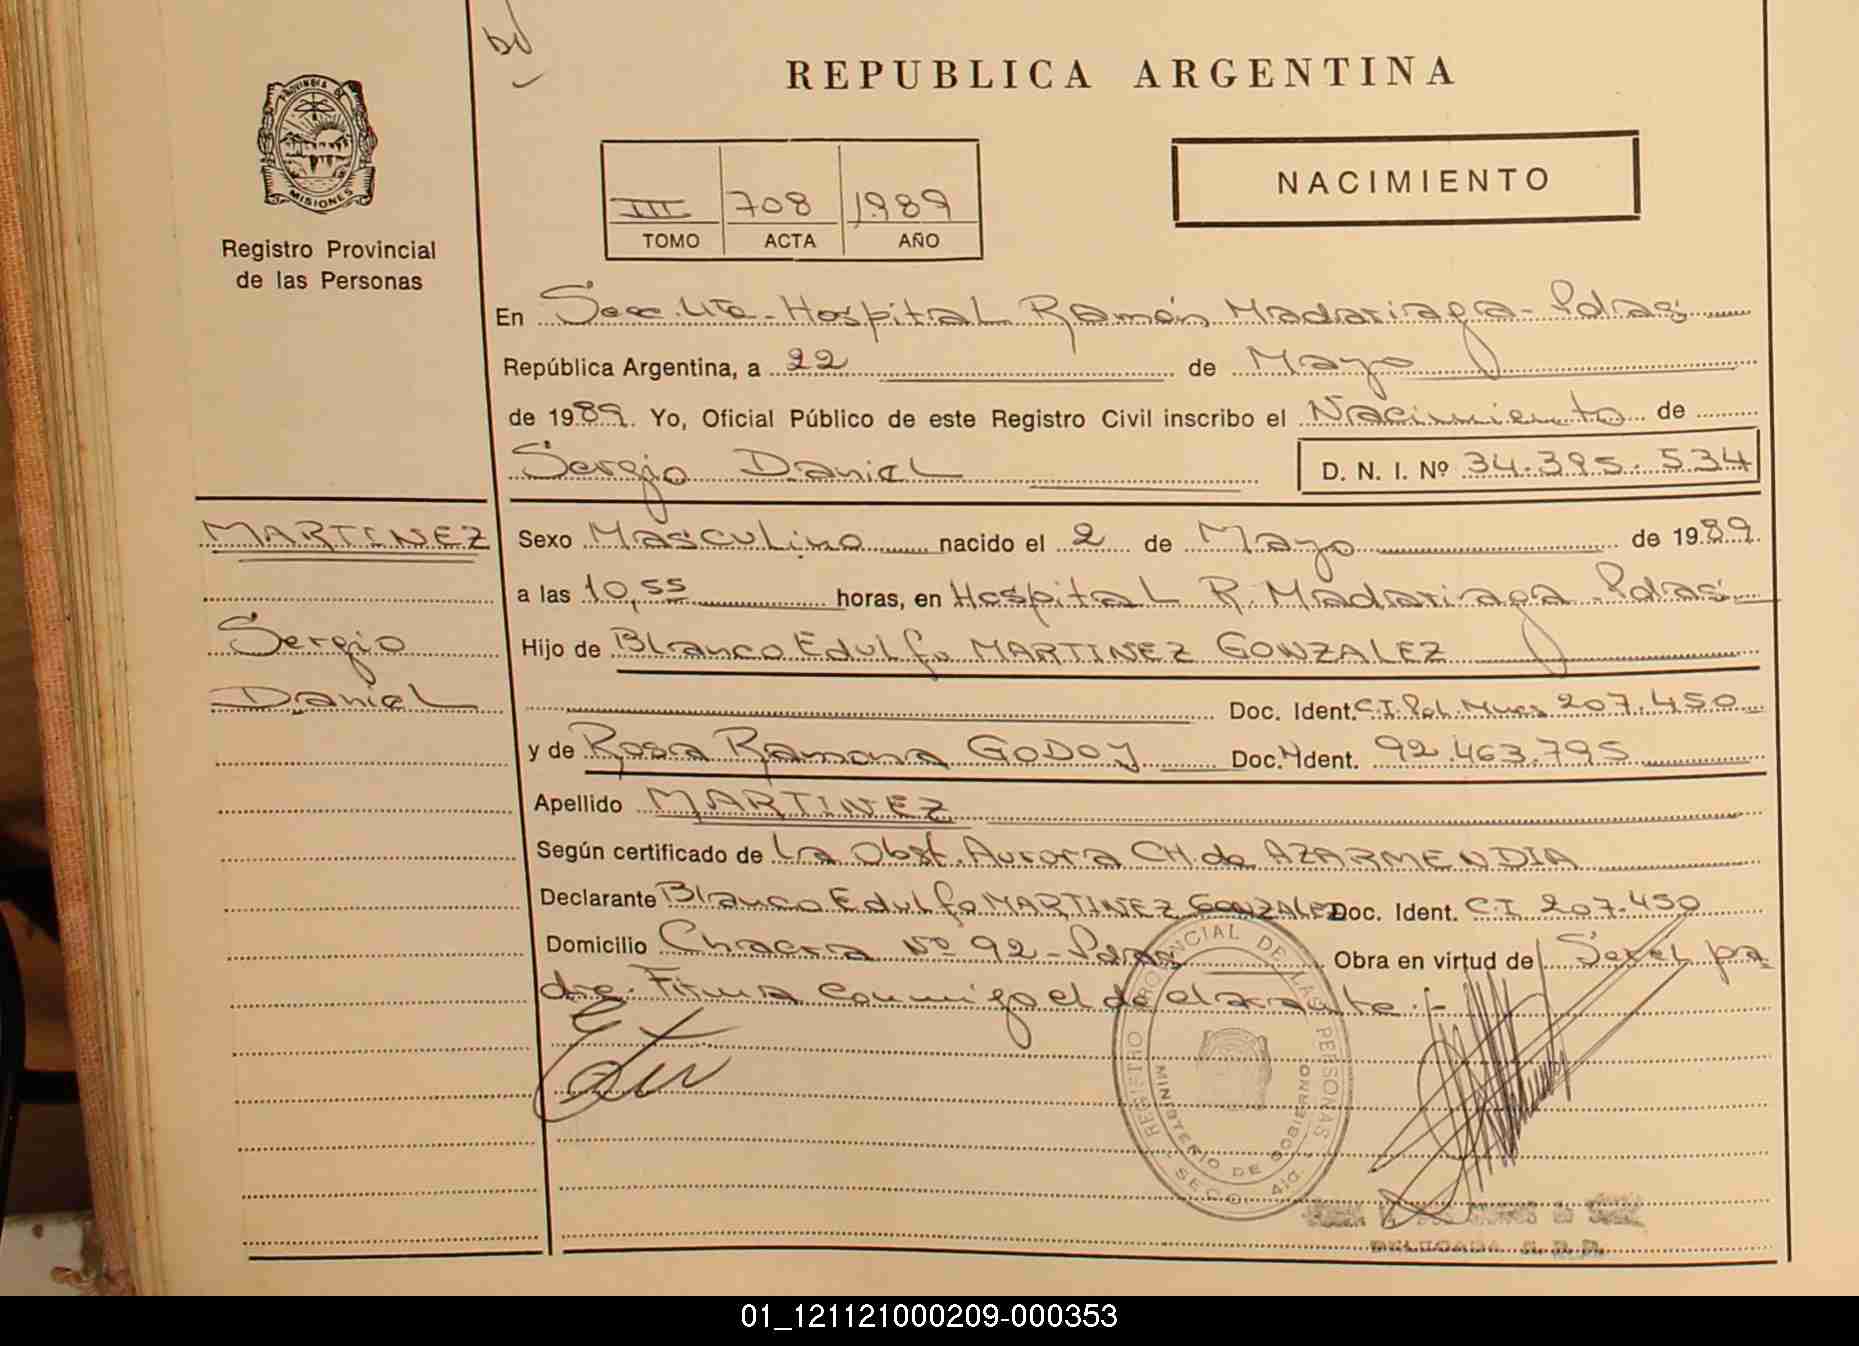 REPUBLICA ARGENTINA
PROVINCIA DE
MISIONES
Registro Provincial
de las Personas
III 708 1989
TOMO ACTA AÑO
NACIMIENTO
En Secc. 4ta - Hospital Ramón Madariaga - Pdas
República Argentina, a 22 de Mayo
de 1989. Yo, Oficial Público de este Registro Civil inscribo el Nacimiento de
Sergio Daniel D. N. I. Nº 34.395.534
MARTINEZ
Sergio
Daniel
Sexo Masculino nacido el 2 de Mayo de 1989.
a las 10,55 horas, en Hospital R. Madariaga - Pdas
Hijo de Blanco Edulfo MARTINEZ GONZALEZ
Doc. Ident. C.I. Pol. Mnes 207.450
y de Rosa Ramona GODOY Doc. Ident. 92.463.795
Apellido MARTINEZ
Según certificado de La Obst. Aurora CH. de AZARMENDIA
Declarante Blanco Edulfo MARTINEZ GONZALEZ Doc. Ident. C.I 207.450
Domicilio Chacra Nº 92 - Pdas Obra en virtud de Ser el pa
dre. Firma conmigo el declarante.-
REGISTRO PROVINCIAL DE LAS PERSONAS
MINISTERIO DE GOBIERNO
SECC. 4ta.
DELEGADA R. P. P.
01_121121000209-000353